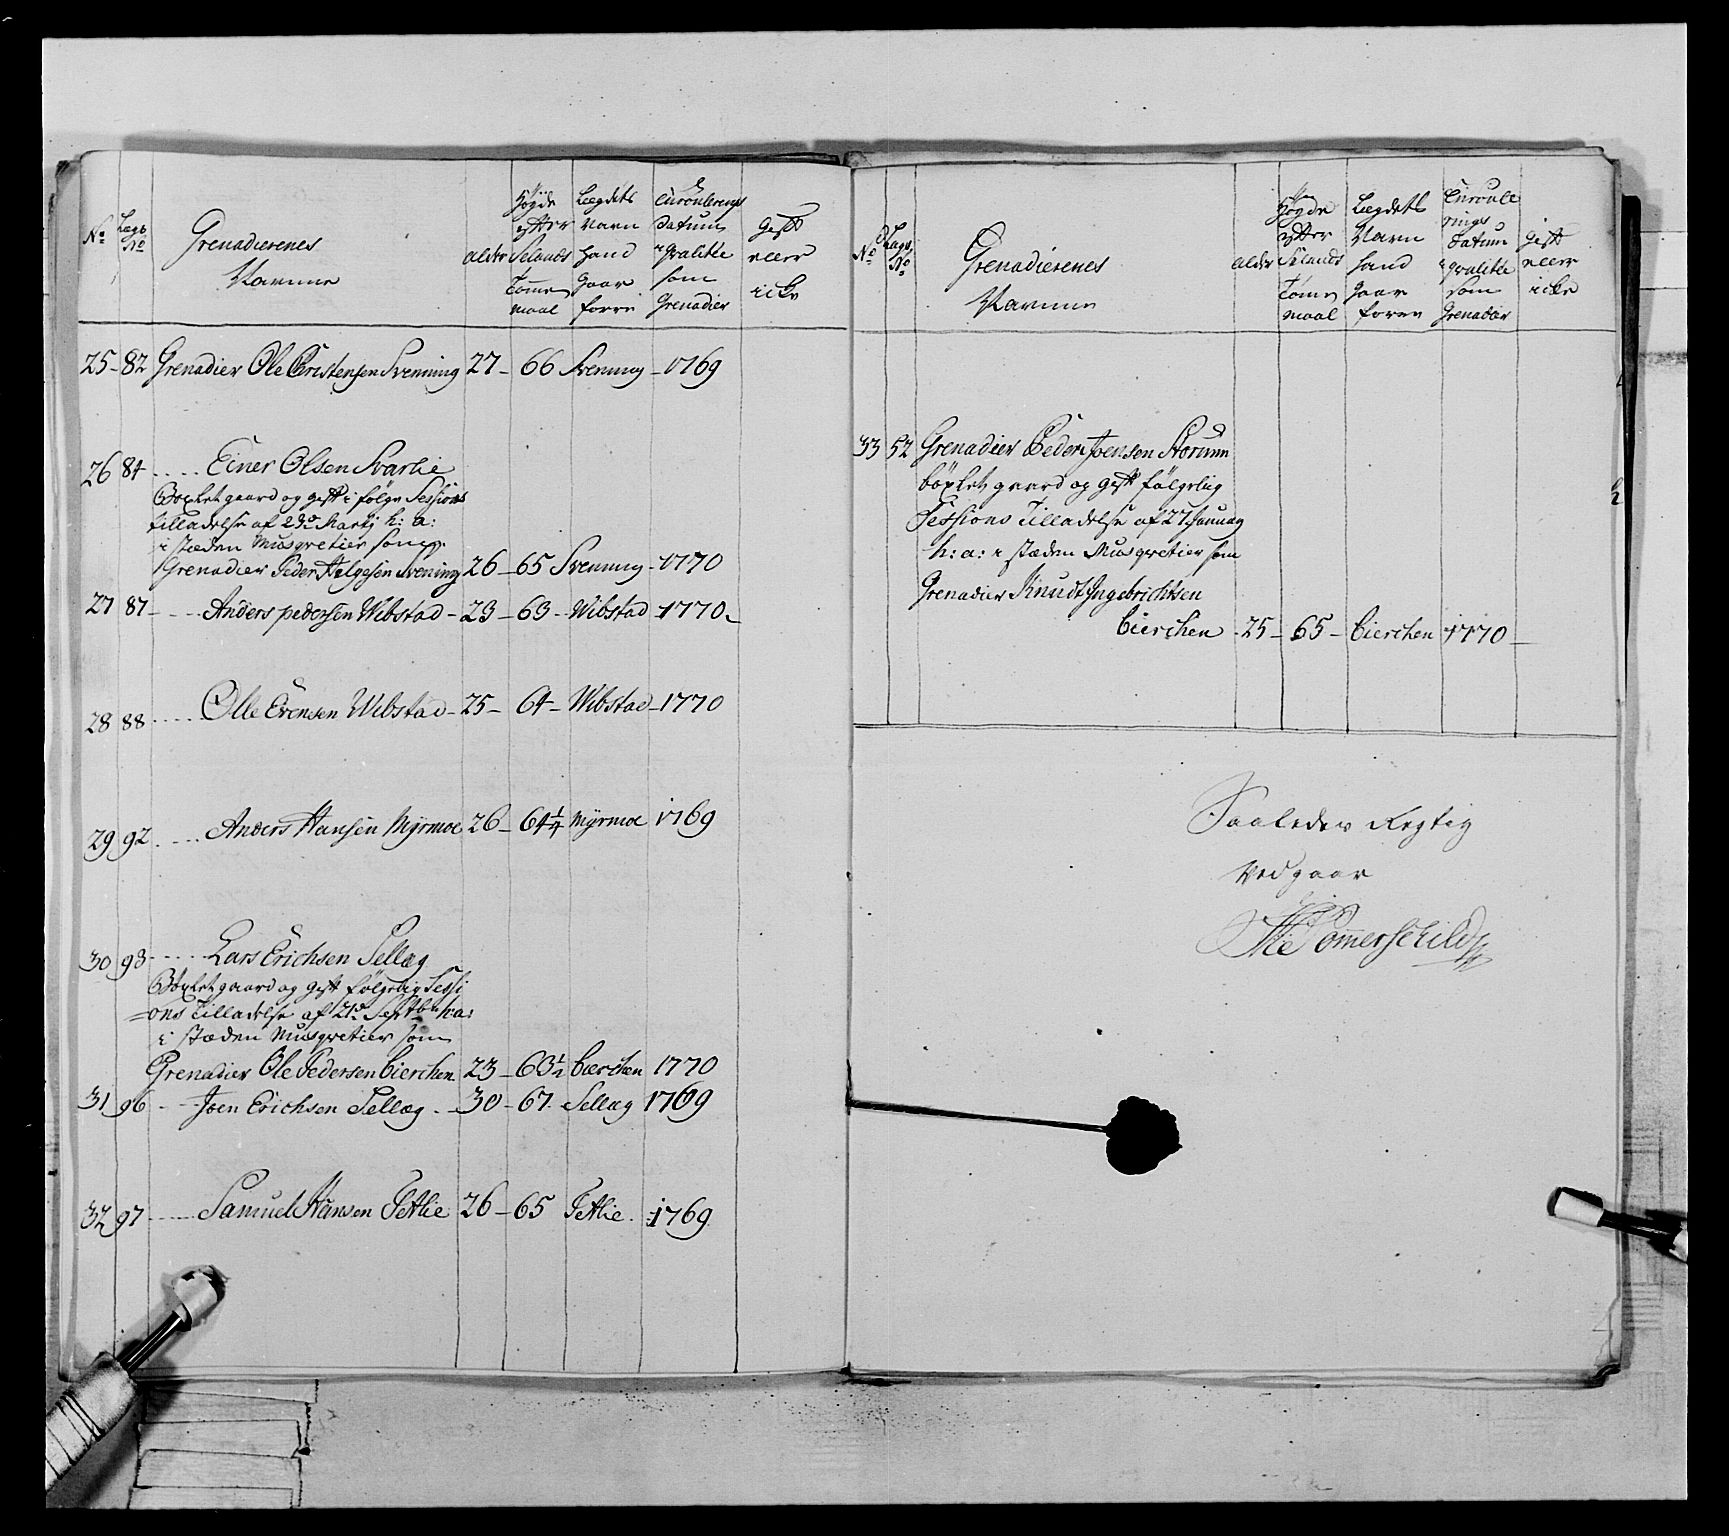 No Lægs No Grenadierenes Navnne alder Høyde efter Selands Tomme maal Legdets Navn hand Gaar forre Enroulerings Datum i qvalitte som Grenadier Gift eller icke
25 - 82 Grenadier Ole Christensen Svenning 27 - 66 Svenning - 1769
26 84 ..... Einer Olsen Svarlie
Böxlet gaard og gift i følge Sessions
tilladelse af 23de Martj h: a:
i stæden Musqvetier som
Grenadier Peder Helgesen Svening 26 - 65 Svenning - 1770
27 87 - ..... Anders pedersen Wibstad - 23 - 63 - Wibstad - 1770 -
28 88 ..... Olle Evensen Wibstad - 25 - 64 - Wibstad - 1770
29 92 ..... Anders Hansen Myrmoe 26 - 64 1/4 Myrmoe 1769
30 93 ..... Lars Erichsen Sellæg
Böxlet gaard og gift følgelig Sessi
=ons Tilladelse af 21de Septbr h: a:
i stæden Musqvetier som
Grenadier Ole Pedersen bierchen 23 - 63 1/2 bierchen 1770
31 96 - Joen Erichsen Sellæg - 30 - 67 - Sellæg 1769
32 97 ..... Samuel Hansen Tetlie 26 - 65 Tetlie - 1769
No Lægs No Grenadierenes Navnne alder Høyde efter Selands Tome maal Legdets Navn hand Gaar foren Enroulerings Datum i qvalitte som Grenadier Gift eller icke
33 52 Grenadier Peder Joensen Storuun
böxlet gaard og gift følgelig
Sessions Tilladelse af 27 January
h: a: i stæden Musqvetier som
Grenadier Knudt Ingebrichtsen
bierchen - 25 - 65 - bierchen 1770 -
Saaledes Rigtig
Vedgaar